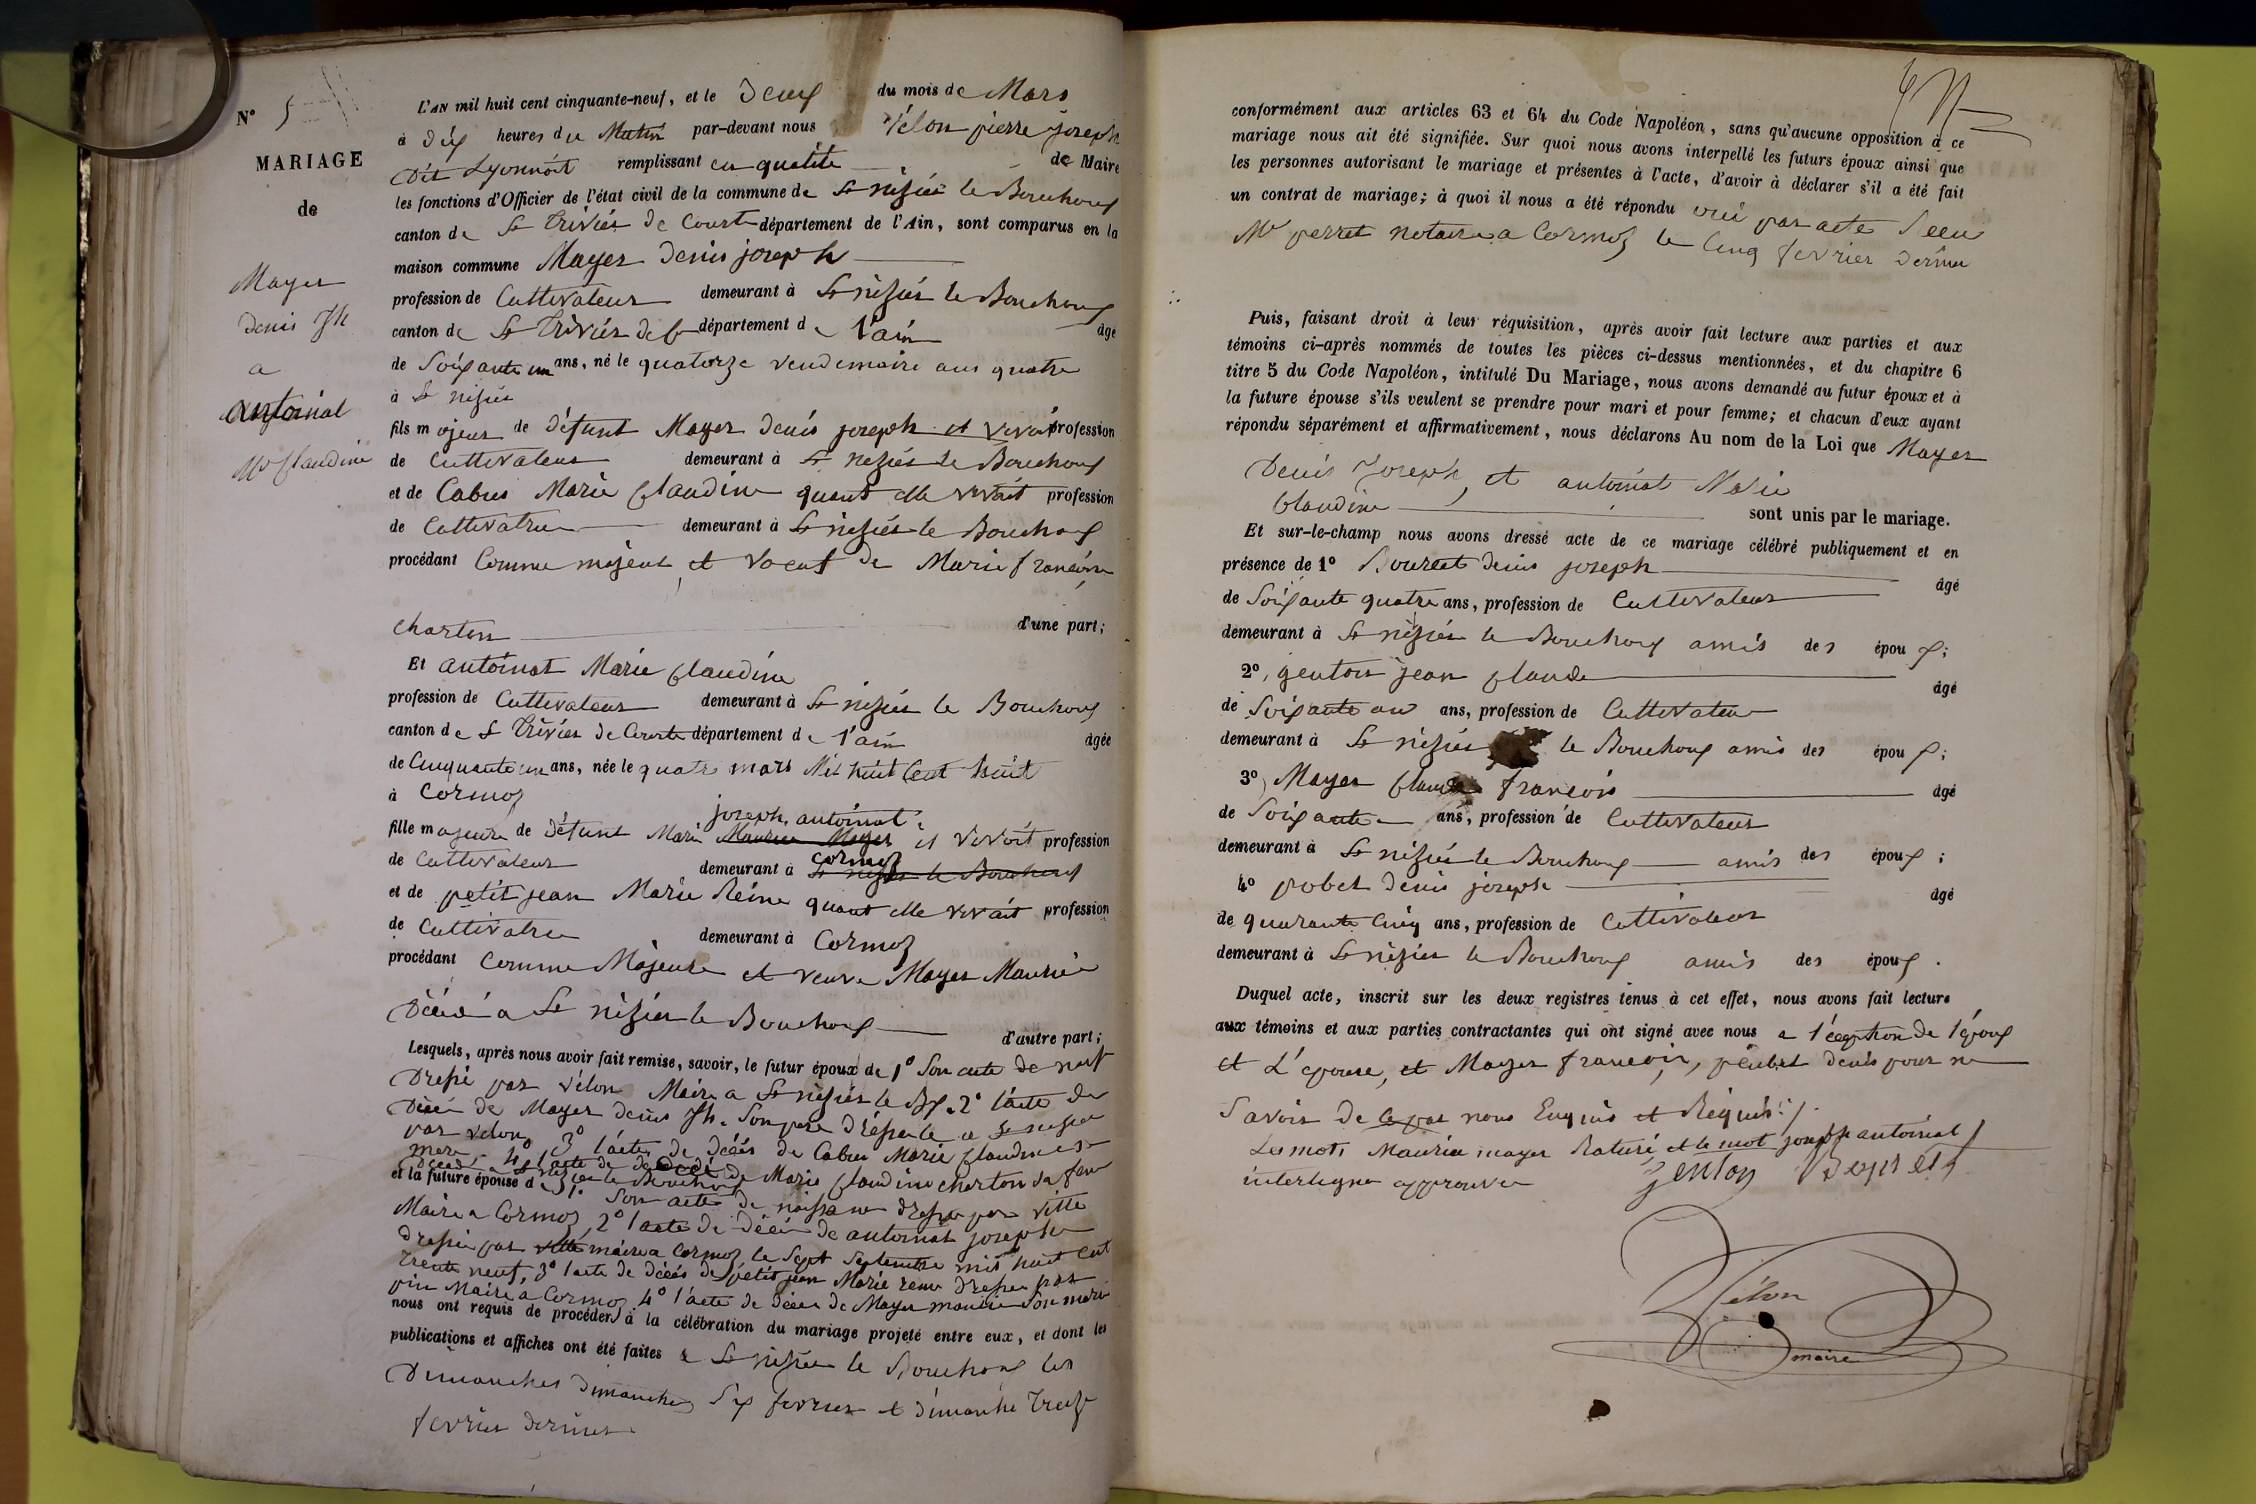 N° 5
MARIAGE
de
Mayer
denis Jh
a
antoinat
Mie Claudine
L'AN mil huit cent cinquante-neuf, et le deux du mois de Mars
à dix heures du Matin par-devant nous Vélon pierre joseph
dit Lyonnait remplissant en qualité de Maire
les fonctions d'Officier de l'état civil de la commune de St nizier le Bouchoux
canton de St Trivier de Courte département de l'Ain, sont comparus en la
maison commune Mayer denis joseph
profession de Cultivateur demeurant à St nizier le Bouchoux
canton de St Trivier de C département de l'ain âgé
de Soixante un ans, né le quatorze vendemaire ans quatre
à St nizier
fils majeur de défunt Mayer denis joseph it vivait profession
de Cultivateur demeurant à St nezier le Bouchoux
et de Cabus Marie Claudine quant elle vivait profession
de Cultivatrice demeurant à St nezier le Bouchoux
procédant Comme majeur et voeuf de Marie francoise
charton d'une part;
Et antoinat Marie Claudine
profession de Cultivateur demeurant à St nizier le Bouchoux
canton de St Trivier de Courte département de l'ain âgée
de Cinquante un ans, née le quatre mars Mil huit Cent huit
à Cormoz
joseph antoinat
fille majeure de défunt Marie Maurice Mayer il vivoit profession
Cormoz
de Cultivateur demeurant à St nizier le Bouchoux
et de petit jean Marie Reine quant elle vivait profession
de Cultivatrice demeurant à Cormoz
procédant Comme Majeure et veuve Mayer Maurice
Décédé a St nizier le Bouchoux d'autre part;
Lesquels, après nous avoir fait remise, savoir, le futur époux de 1° Son acte de
Dressé par vélon Maire a St nizier le Bx 2° l'acte de
Décé de Mayer denis Jh. Son pere a St nizier
par velon 3° l'acte de décés de Cabus Marie Claudine sa
mere 4° l'acte de décé de Marie Claudine charton sa
le Bouchoux
et la future épouse de 1° Son acte de naissance dressé par Vitte
Maire a Cormoz, 2° l'acte de décé de antoinat joseph
dressé par vitte maire a Cormoz le Sept Septembre mil huit cent
trente neuf, 3° l'acte de décés de petit jean Marie reine dressé par
pin Maire a Cormoz 4° l'acte de décé de Mayer maurice Son mari
nous ont requis de procéder à la célébration du mariage projeté entre eux, et dont les
publications et affiches ont été faites a St nizier le Bouchoux les
Dimanches dimanche Six fevrier et dimanche treize
fevrier dernier
conformément aux articles 63 et 64 du Code Napoléon, sans qu'aucune opposition à ce
mariage nous ait été signifiée. Sur quoi nous avons interpellé les futurs époux ainsi que
les personnes autorisant le mariage et présentes à l'acte, d'avoir à déclarer s'il a été fait
un contrat de mariage; à quoi il nous a été répondu oui par acte
Me perret notaire a Cormoz le Cinq fevrier dernier
Puis, faisant droit à leur réquisition, après avoir fait lecture aux parties et aux
témoins ci-après nommés de toutes les pièces ci-dessus mentionnées, et du chapitre 6
titre 5 du Code Napoléon, intitulé Du Mariage, nous avons demandé au futur époux et à
la future épouse s'ils veulent se prendre pour mari et pour femme; et chacun d'eux ayant
répondu séparément et affirmativement, nous déclarons Au nom de la Loi que Mayer
Denis Joseph, et antoinat Marie
Claudine sont unis par le mariage.
Et sur-le-champ nous avons dressé acte de ce mariage célébré publiquement et en
présence de 1° denis joseph âgé
de Soixante quatre ans, profession de Cultivateur
demeurant à St nizier le Bouchoux amis des époux;
2°, genton jean Claude âgé
de Soixante ans, profession de Cultivateur
demeurant à St nizier le Bouchoux amis des époux;
3°) Mayer Claude francois âgé
de Soixante ans, profession de Cultivateur
demeurant à St nizier le Bouchoux amis des époux;
4° pobet denis joseph âgé
de quarante Cinq ans, profession de Cultivateur
demeurant à St nizier le Bouchoux amis des époux.
Duquel acte, inscrit sur les deux registres tenus à cet effet, nous avons fait lecture
aux témoins et aux parties contractantes qui ont signé avec nous a l'éception de l'époux
et L'épouse, et Mayer francois, denis pour ne
Savoir de nous Enquis et Requis ./.
Les mots Maurice mayer Raturé et le mot joseph antoinat
interligne approuvé
Genton
Vélon
maire